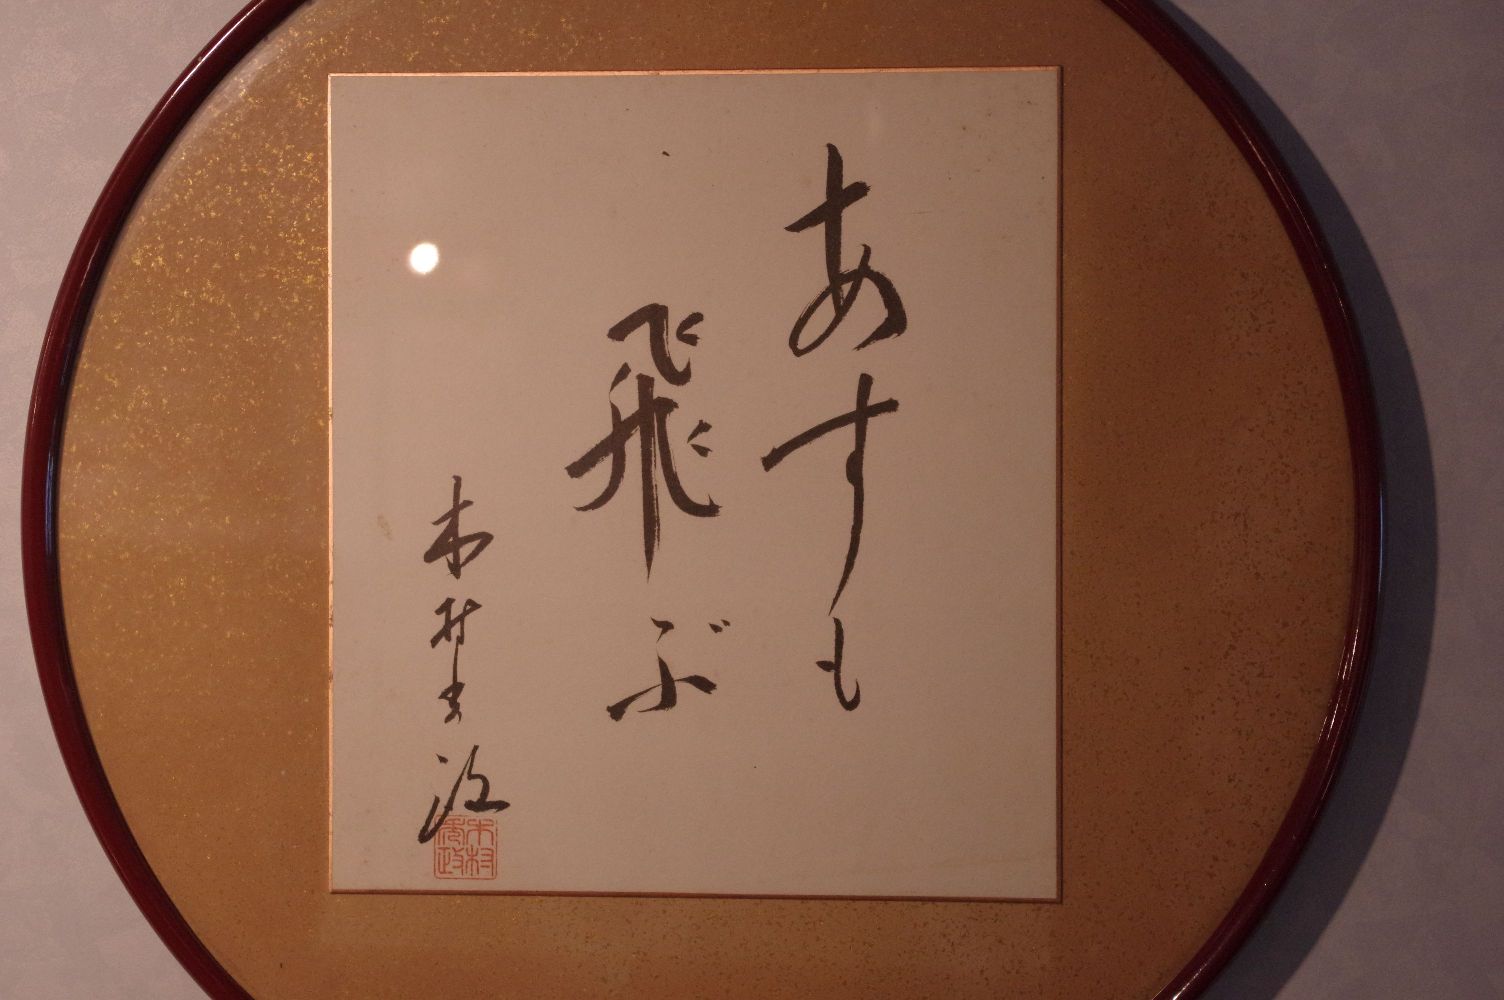 あすも
飛ぶ
木村秀政
木村秀政